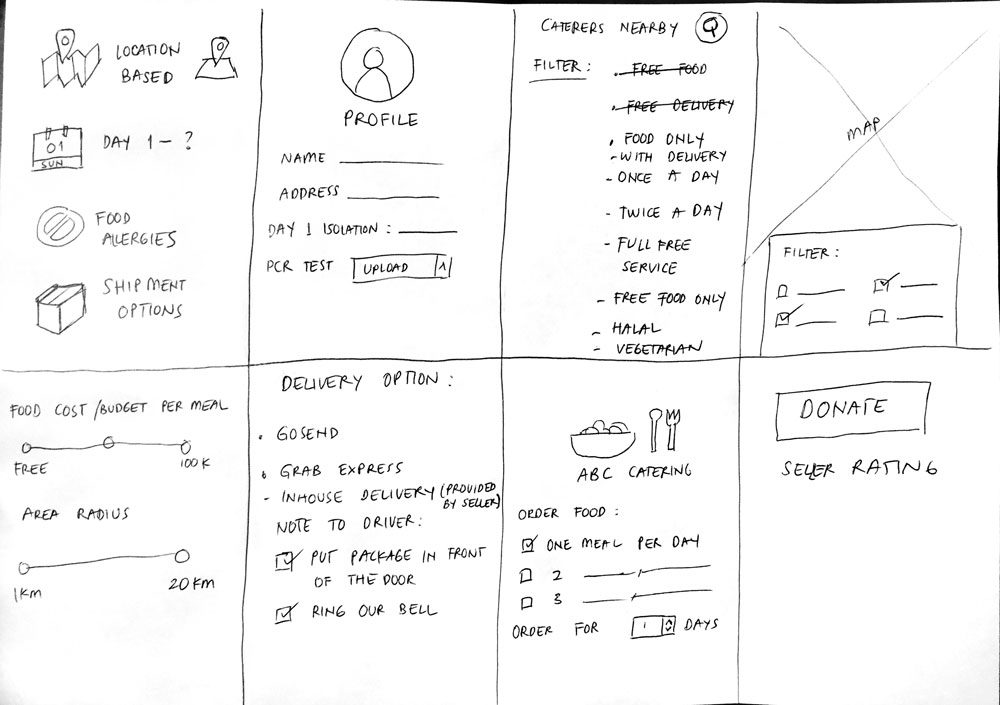 LOCATION
BASED
01
SUN
DAY 1 - ?
FOOD
ALLERGIES
SHIPMENT
OPTIONS
PROFILE
NAME
ADDRESS
DAY 1 ISOLATION :
PCR TEST UPLOAD
CATERERS NEARBY
FILTER :
. FREE FOOD
. FREE DELIVERY
. FOOD ONLY
- WITH DELIVERY
- ONCE A DAY
- TWICE A DAY
- FULL FREE
SERVICE
- FREE FOOD ONLY
- HALAL
- VEGETARIAN
MAP
FILTER :
FOOD COST / BUDGET PER MEAL
FREE 100K
AREA RADIUS
1KM 20KM
DELIVERY OPTION :
. GOSEND
. GRAB EXPRESS
- INHOUSE DELIVERY (PROVIDED
BY SELLER)
NOTE TO DRIVER:
PUT PACKAGE IN FRONT
OF THE DOOR
RING OUR BELL
ABC CATERING
ORDER FOOD :
ONE MEAL PER DAY
2
3
ORDER FOR 1 DAYS
DONATE
SELLER RATING